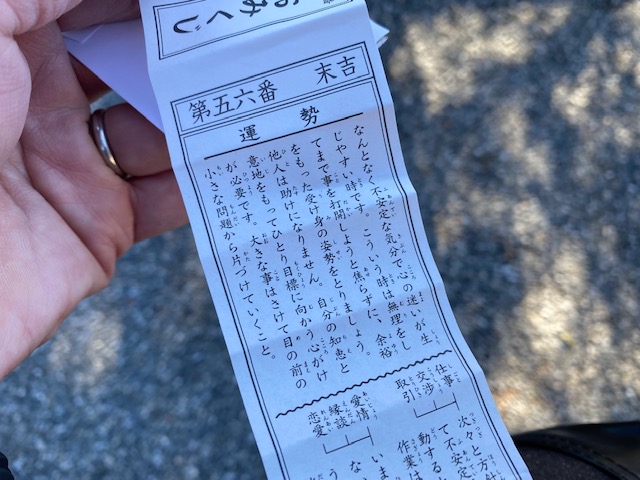 おみくじ
第五六番 末吉
運勢
なんとなく不安定な気分で心の迷いが生
じやすい時です。こういう時は無理をし
てまで事を打開しようと焦らずに、余裕
をもった受け身の姿勢をとりましょう。
他人は助けになりません。自分の知恵と
意地をもってひとり目標に向かう心がけ
が必要です。大きな事はさけて目の前の
小さな問題から片づけていくこと。
仕事
交渉
取引
次々と方針
て不安定
動する
作業は
愛情
縁談
恋愛
いま
ない